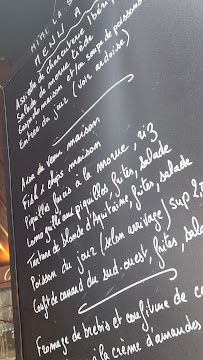 MENU A
Assiette de charcuterie Ibéri
Salade de morue tiède
maison et/ou soupe de poissons
Entrée du jour (voir ardoise)
Axoa de veau maison
maison
Piquillos farcis à la morue, riz
piquillos, frites, salade
Tartare de blonde d'Aquitaine, frites, salade
Poisson du jour (selon arrivage) sup 2,
Confit de canard du sud-ouest, frites, salade
Fromage de brebis et confiture de ce
à la crème d'amandes